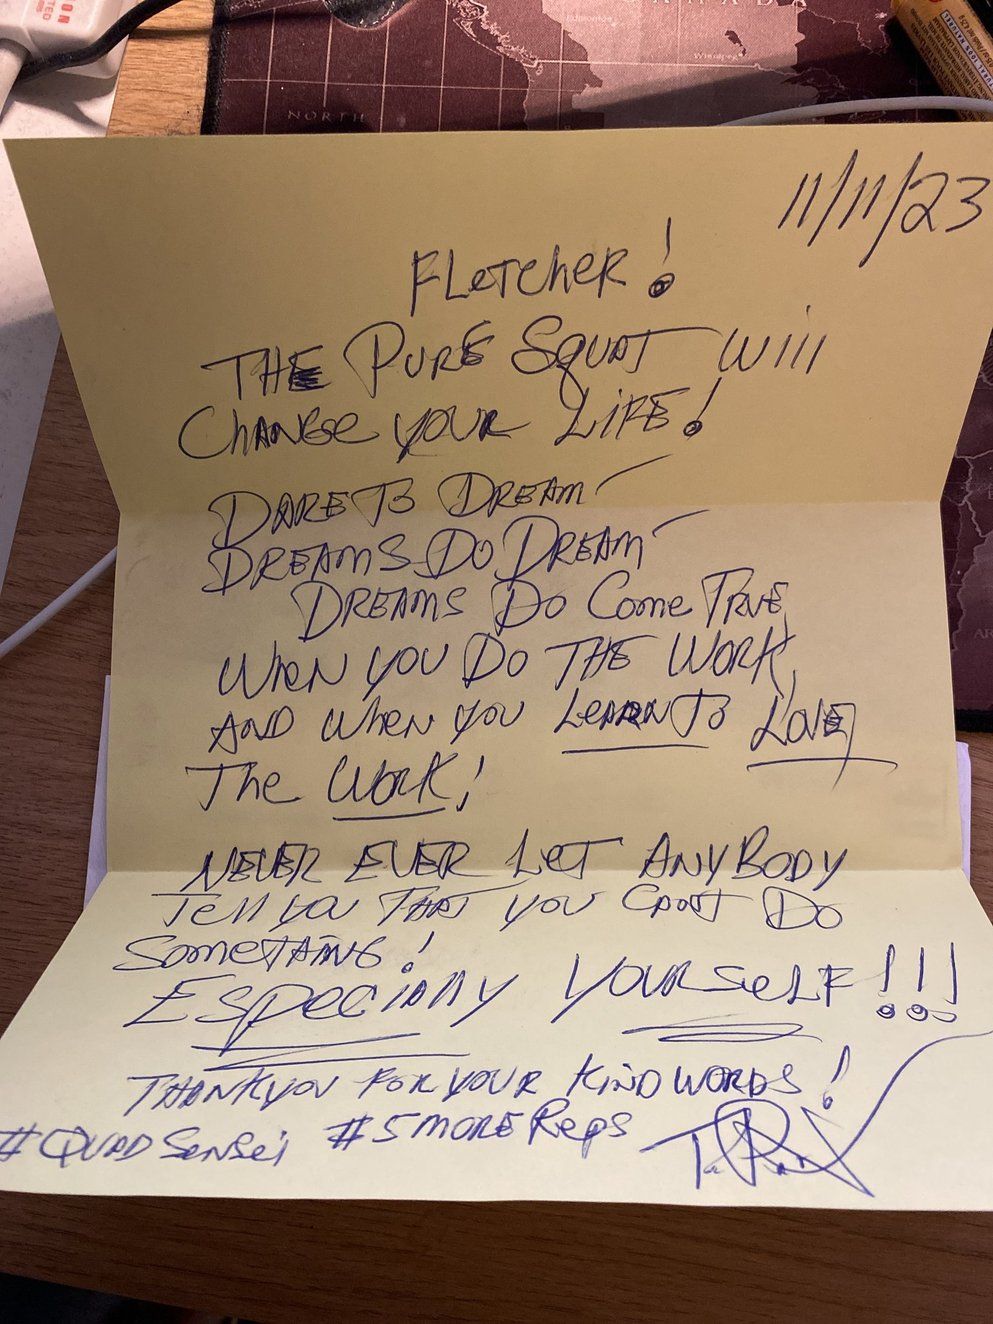 NORTH
11/11/23
FLETCHER!
THE PURE SQUAT WILL
CHANGE YOUR LIFE!
DARE TO DREAM
DREAMS DO DREAM
DREAMS DO COME TRUE,
WHEN YOU DO THE WORK,
AND WHEN YOU LEARN TO LOVE
THE WORK!
NEVER EVER LET ANYBODY
TELL YOU THAT YOU CAN'T DO
SOMETHING!
ESPECIALLY YOURSELF!!!
THANK YOU FOR YOUR KIND WORDS!
#QUADSENSEI #5MOREREPS